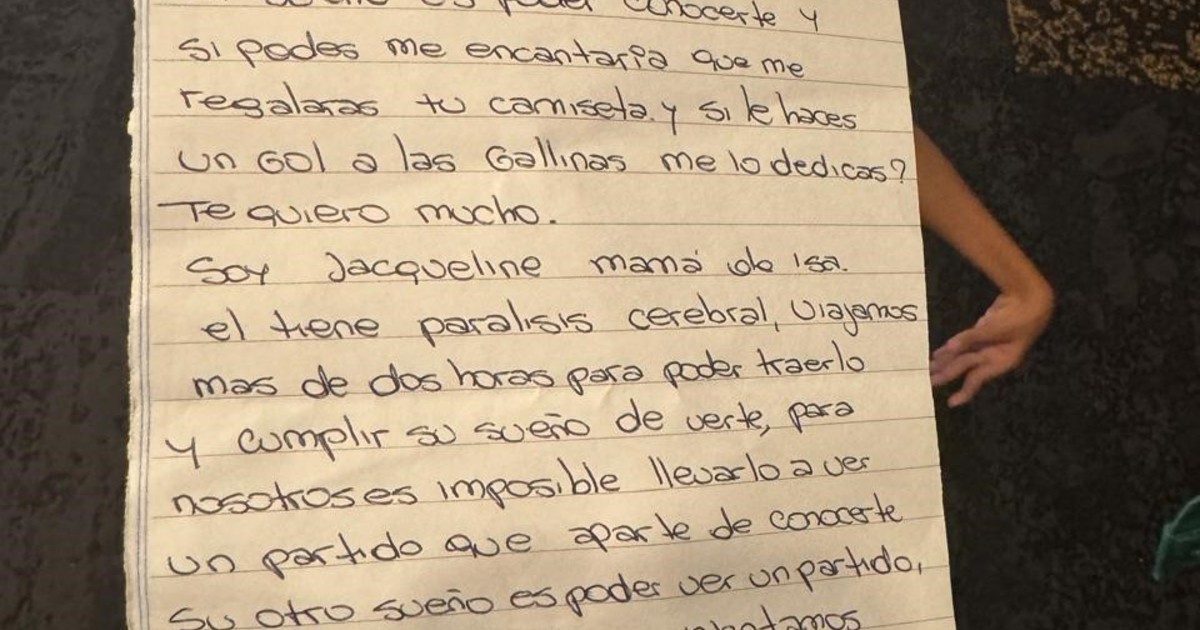 es poder conocerte y
si podes me encantaria que me
regalaras tu camiseta. y si le haces
un Gol a las Gallinas me lo dedicas?
Te quiero mucho.
Soy Jacqueline mamá de isa.
el tiene paralisis cerebral, viajamos
mas de dos horas para poder traerlo
y cumplir su sueño de verte, para
nosotros es imposible llevarlo a ver
un partido que aparte de conocerte
su otro sueño es poder ver un partido,